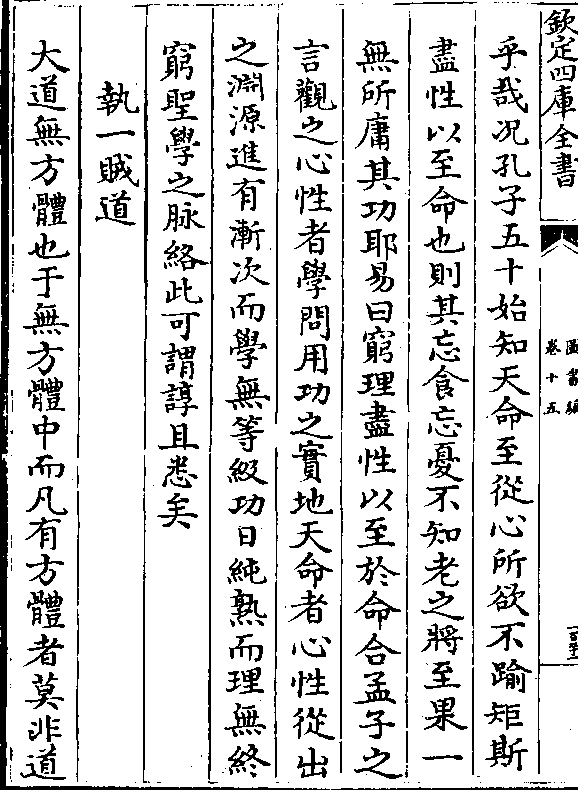 欽定四庫全書
圖書編
卷十五
乎哉况孔子五十始知天命至從心所欲不踰矩斯
盡性以至命也則其忘食忘憂不知老之將至果一
無所庸其功耶易曰窮理盡性以至於命合孟子之
言觀之心性者學問用功之實地天命者心性從出
之淵源進有漸次而學無等級功日純熟而理無終
窮聖學之脉絡此可謂諄且悉矣
執一賊道
大道無方體也于無方體中而凡有方體者莫非道